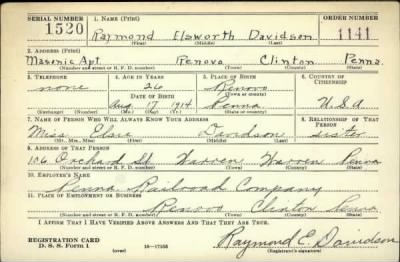 SERIAL NUMBER 1. NAME (Print) ORDER NUMBER
1520 Raymond Elsworth Davidson 1141
(First) (Middle) (Last)
2. ADDRESS (Print)
Masonic Apt. Renova Clinton Penna.
(Number and street or R. F. D. number) (Town) (County) (State)
3. TELEPHONE 4. AGE IN YEARS 5. PLACE OF BIRTH 6. COUNTRY OF CITIZENSHIP
none 26 Renovo
DATE OF BIRTH (Town or county)
Aug 17 1914 Penna U.S.A
(Exchange) (Number) (Mo.) (Day) (Yr.) (State or country)
7. NAME OF PERSON WHO WILL ALWAYS KNOW YOUR ADDRESS 8. RELATIONSHIP OF THAT PERSON
Miss Elsie Davidson sister
(Mr., Mrs., Miss) (First) (Middle) (Last)
9. ADDRESS OF THAT PERSON
106 Orchard St Warren Warren Penna
(Number and street or R. F. D. number) (Town) (County) (State)
10. EMPLOYER'S NAME
Penna. Railroad Company
11. PLACE OF EMPLOYMENT OR BUSINESS
Renovo Clinton Penna
(Number and street or R. F. D. number) (Town) (County) (State)
I AFFIRM THAT I HAVE VERIFIED ABOVE ANSWERS AND THAT THEY ARE TRUE.
REGISTRATION CARD
D. S. S. Form 1 (over) 16—17105 Raymond E. Davidson
(Registrant's signature)